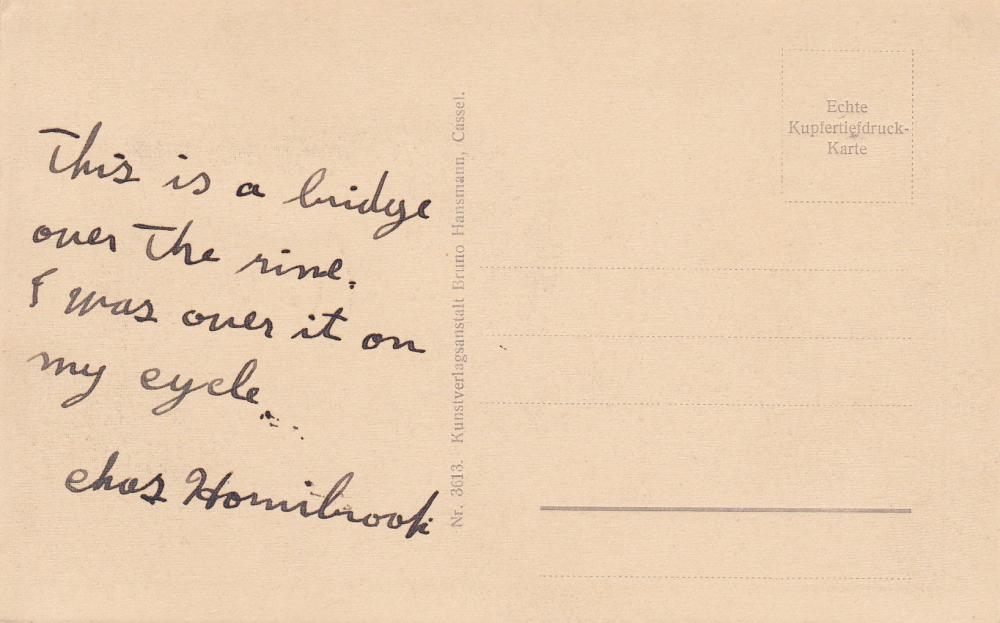 This is a bridge
over the rine.
I was over it on
my cycle
Chas Hornibrook
Nr. 3613. Kunstverlagsanstalt Bruno Hansmann, Cassel.
Echte
Kupfertiefdruck-
Karte